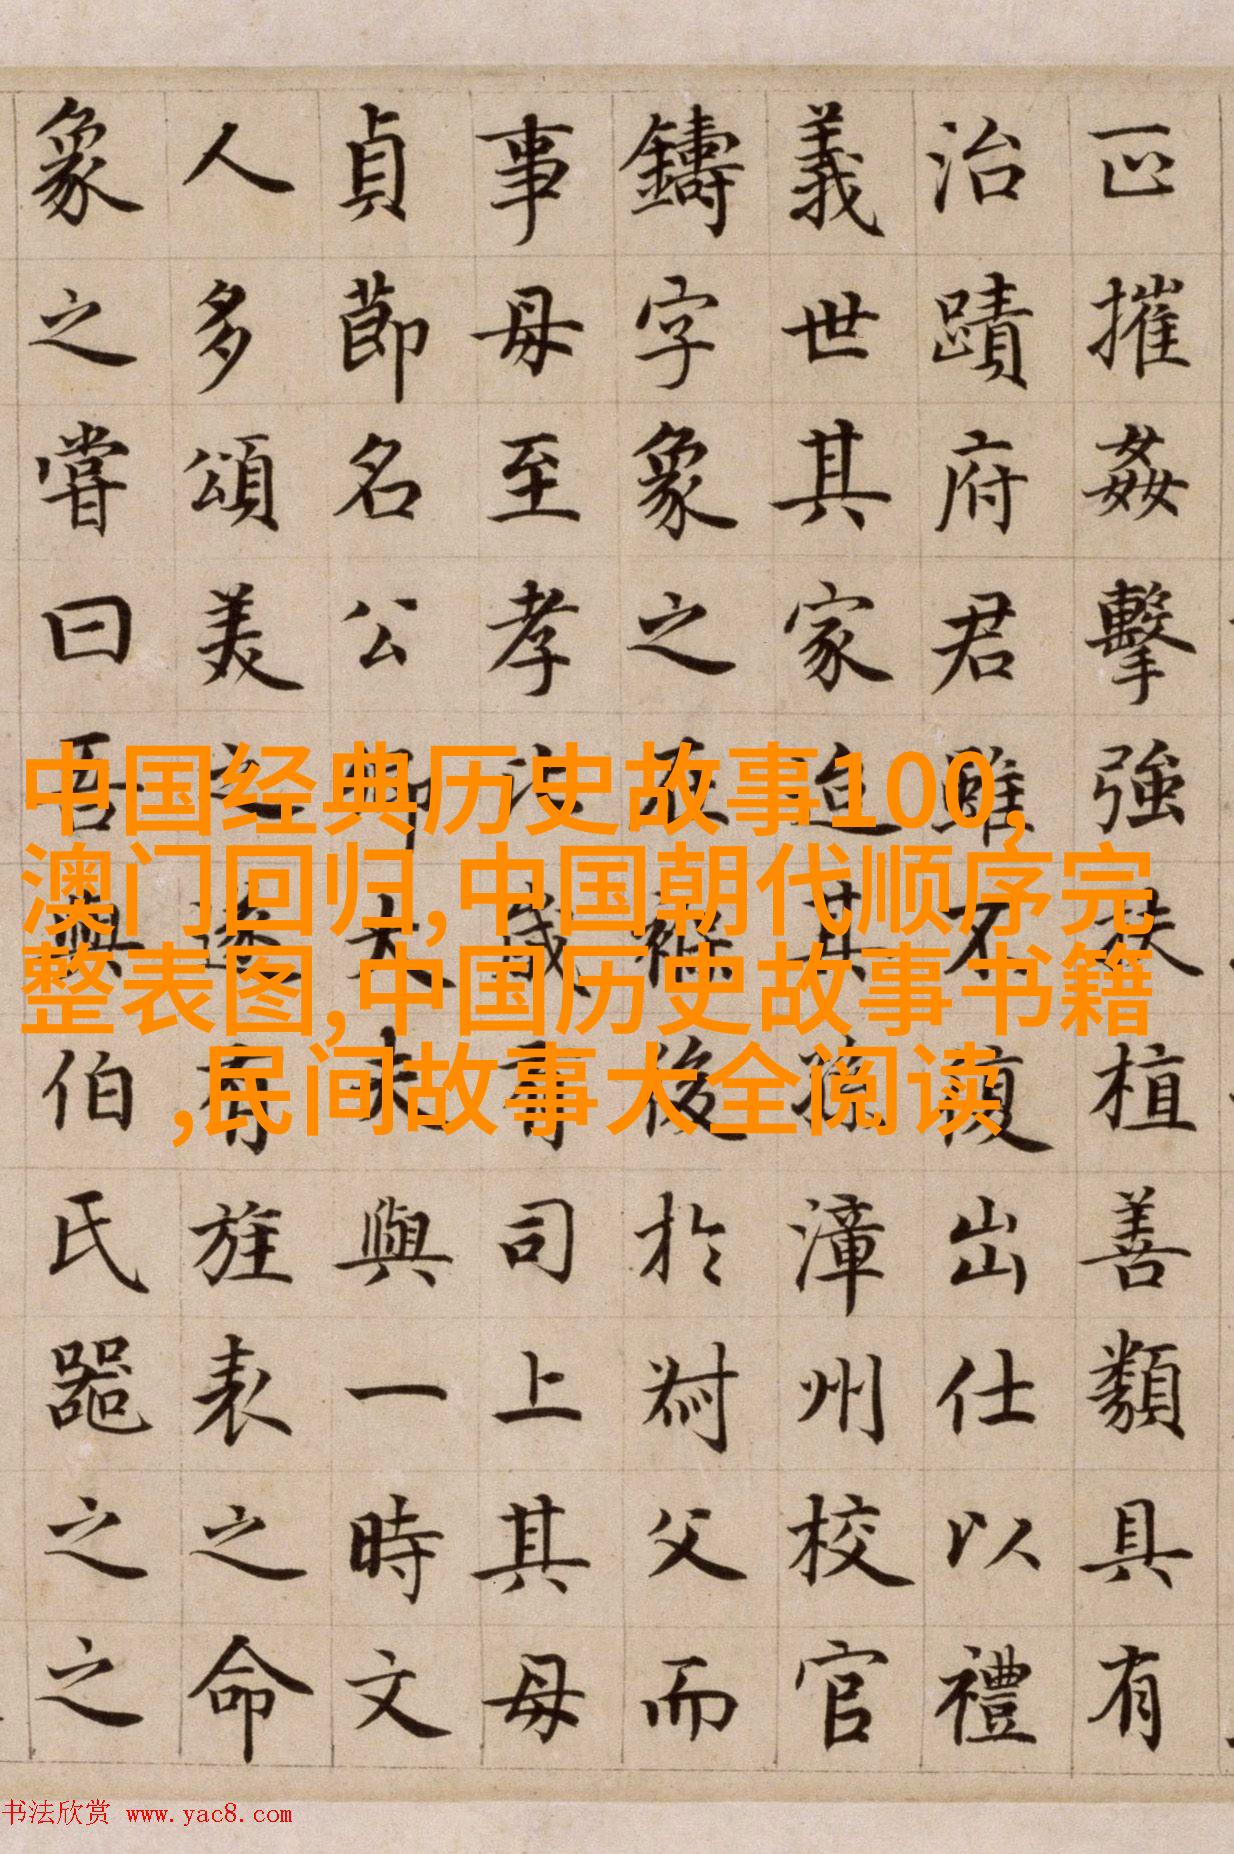 正摧姦擊強扶植善類具有
治蹟府君雖不復出仕以禮
義世其家迨其孫漳州校官
鑄字象之在後於父而
事母至孝歲司上其母
貞節名公卿大夫與一時文
人多頌美之遂有旌表之命
象之嘗曰吾與伯氏器之之
中国经典历史故事100,
澳门回归,中国朝代顺序完
整表图,中国历史故事书籍
,民间故事大全阅读
书法欣赏 www.yac8.com